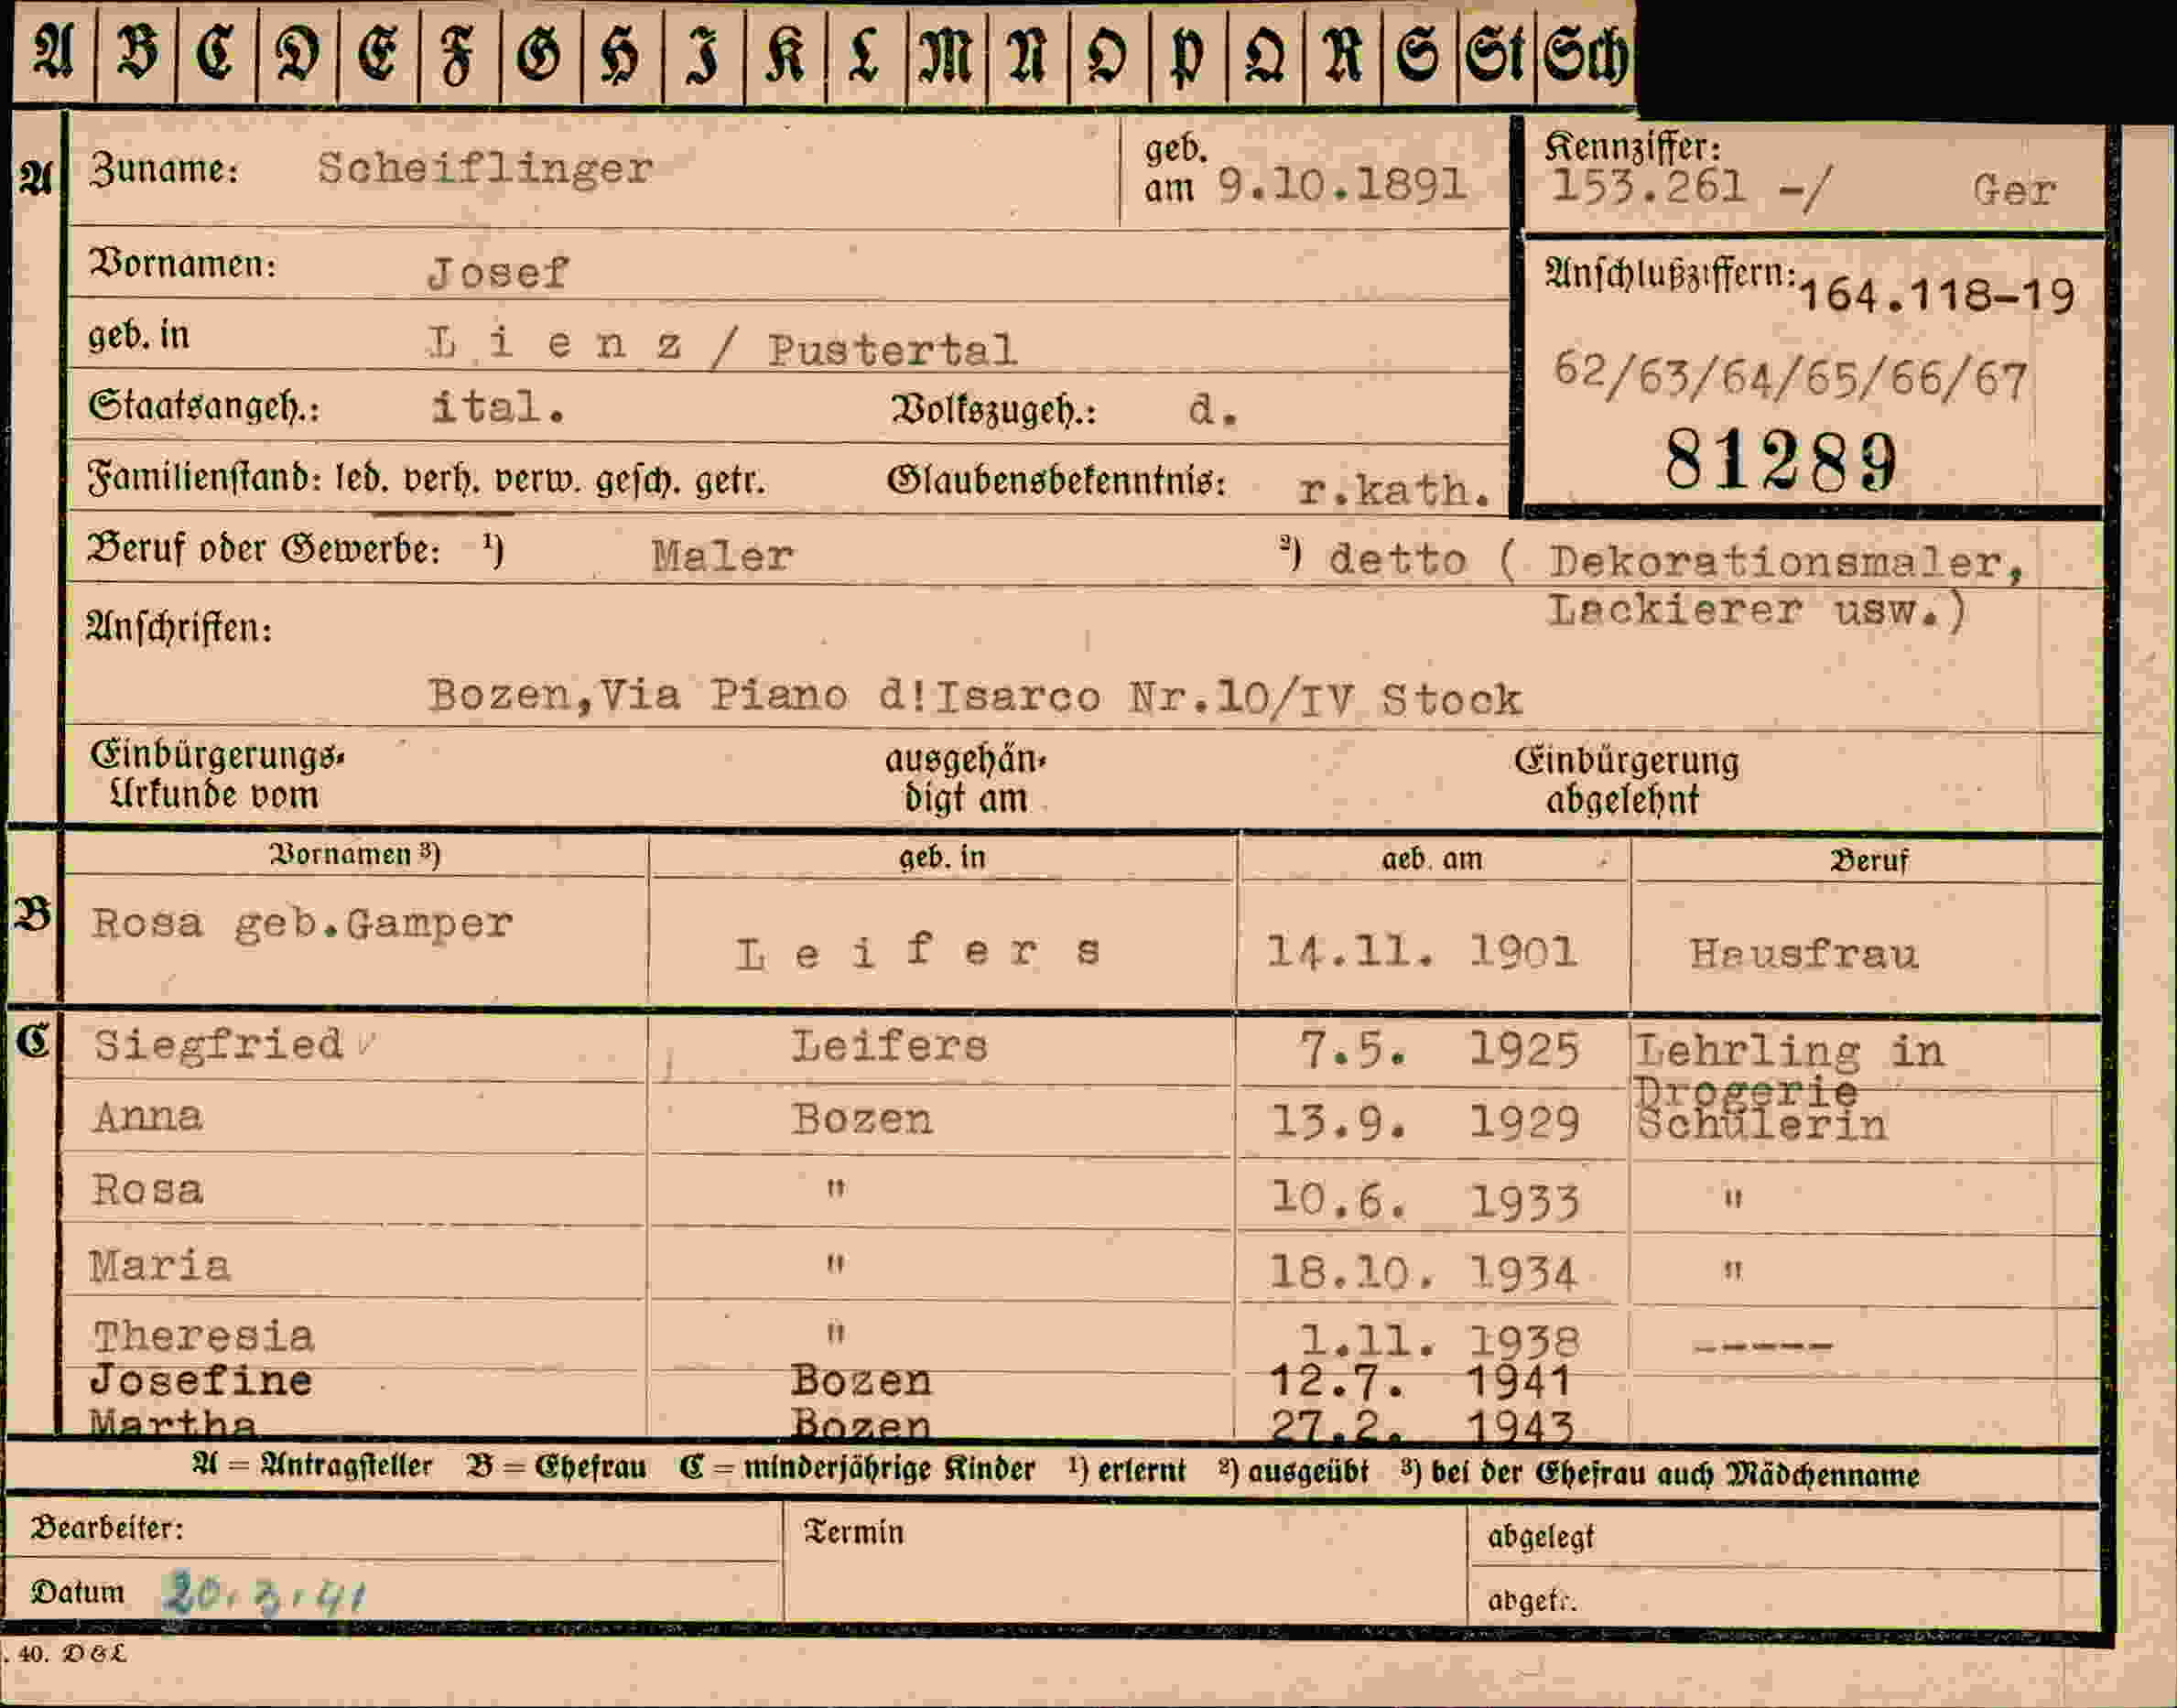 A B C D E F G H I K L M N O P Q R S St Sch
A Zuname: Scheiflinger geb. am 9.10.1891 Kennziffer: 153.261 -/ Ger
Vornamen: Josef Anschlußziffern: 164.118-19
geb. in L i e n z / Pustertal 62/63/64/65/66/67
Staatsangeh.: ital. Volkszugeh.: d. 81289
Familienstand: led. verh. verw. gesch. getr. Glaubensbekenntnis: r.kath.
Beruf oder Gewerbe: ¹) Maler ²) detto ( Dekorationsmaler,
Lackierer usw.)
Anschriften:
Bozen,Via Piano d!Isarco Nr.10/IV Stock
Einbürgerungs- ausgehän- Einbürgerung
Urkunde vom digt am abgelehnt
Vornamen ³) geb. in geb. am Beruf
B Rosa geb.Gamper L e i f e r s 14.11. 1901 Hausfrau
C Siegfried Leifers 7.5. 1925 Lehrling in
Drogerie
Anna Bozen 13.9. 1929 Schülerin
Rosa " 10.6. 1933 "
Maria " 18.10. 1934 "
Theresia " 1.11. 1938 -----
Josefine Bozen 12.7. 1941
Martha Bozen 27.2. 1943
A = Antragsteller B = Ehefrau C = minderjährige Kinder ¹) erlernt ²) ausgeübt ³) bei der Ehefrau auch Mädchenname
Bearbeiter: Termin abgelegt
Datum 20.3.41 abgetr.
. 40. D&L